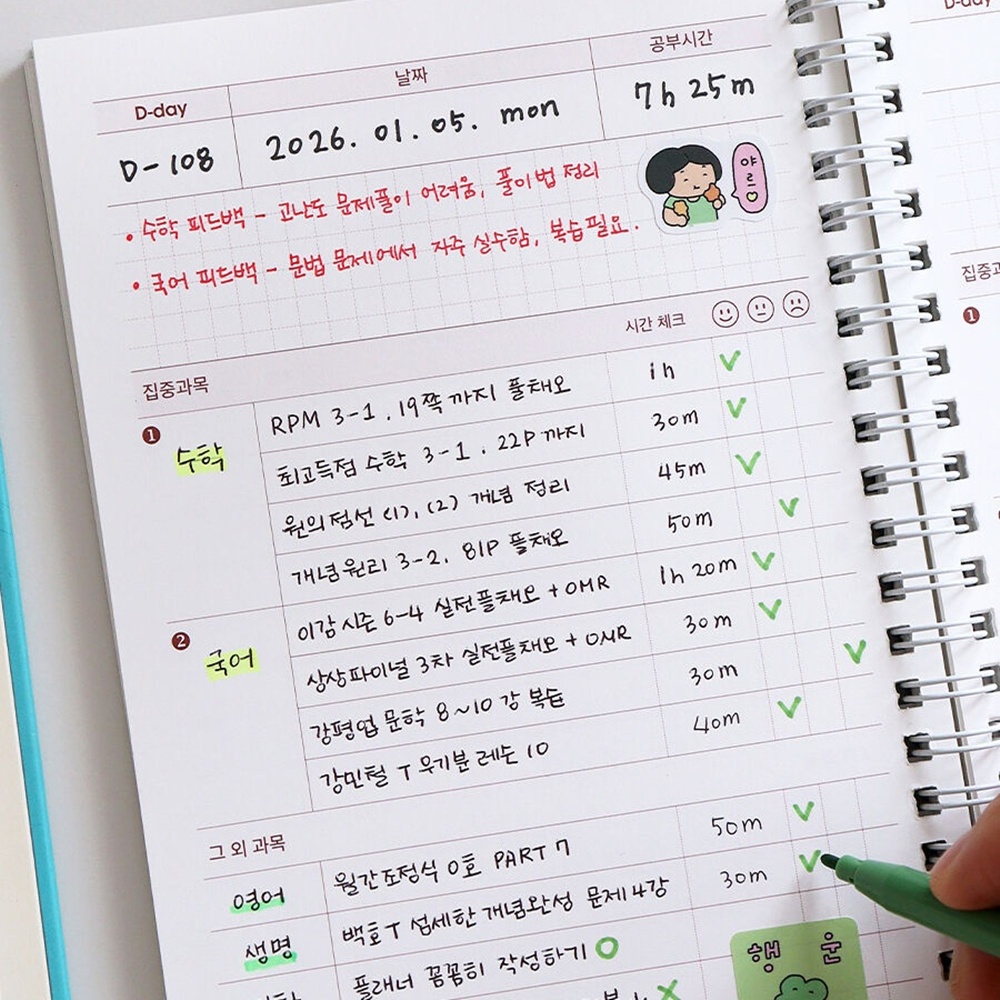 D-day 날짜 공부시간
D-108 2026. 01. 05. mon 7h 25m
• 수학 피드백 - 고난도 문제풀이 어려움, 풀이법 정리
• 국어 피드백 - 문법 문제에서 자주 실수함, 복습필요.
야르
집중과목 시간 체크
1 수학 RPM 3-1, 19쪽 까지 풀채오 1h
최고득점 수학 3-1, 22P 까지 30m
원의점선 (1), (2) 개념 정리 45m
개념원리 3-2, 81P 풀채오 50m
2 국어 이감시즌 6-4 실전풀채오 + OMR 1h 20m
상상파이널 3차 실전풀채오 + OMR 30m
강평업 문학 8~10강 복습 30m
강민철 T 우기분 레슨 10 40m
그 외 과목
영어 월간조정식 0호 PART 7 50m
생명 백호T 섬세한 개념완성 문제 4강 30m
플래너 꼼꼼히 작성하기 O
행운
D-day
집중과
1